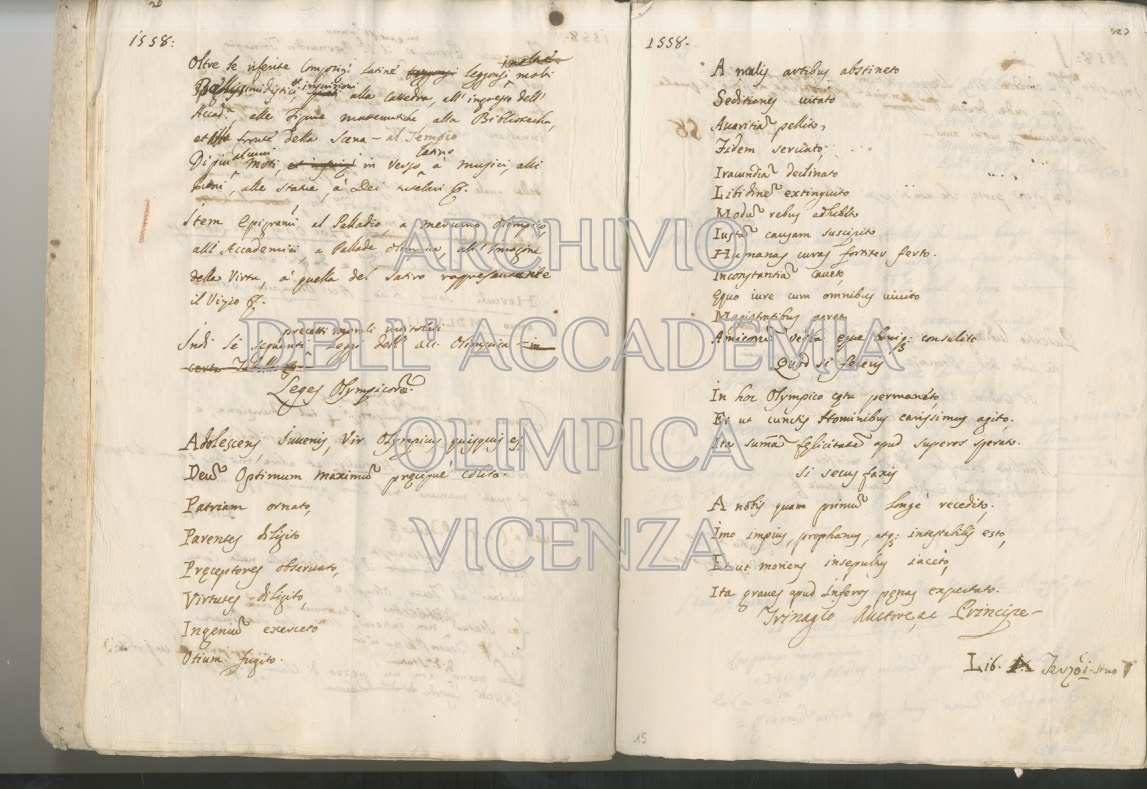 1558:
Oltre le riferite Composiz.i latine leggonsi moti
alla Catedra, all'ingresso dell'
Accad.a, alle figure matematiche alla Biblioteca,
fronte della Scena - al Tempio
Di più alcuni Moti, in verso latino a' Musici, alli
alle Statue, a' Dei tutelari &.
Item Epigrami al Palladio, a Mercurio Olimpico
alli Accademici a Pallade Olimpica, all'Imagine
della Virtù, a' quella del Satiro rappresentante
il Vizio &.
precetti morali
Indi le seguenti Leggi dell'Acc. Olimpica - in
Leges Olympicorũ.
Adolescens, Iuvenis, Vir Olympius quisquis es,
Deũ Optimum Maximũ pręcipuè colito.
Patriam ornato,
Parentes diligito
Pręceptores observato,
Virtutes diligito,
Ingeniũ exerceto
Otium fugito.
1558.
A malis artibus abstineto
Seditiones vitato
Avaritiã pellito,
Fidem servato,
Iracundiã declinato
Libidinẽ extinguito
Modũ rebus adhibeto
Iustã causam suscipito
Humanas curas fortiter ferto.
Inconstantiã caveto,
Equo iure cum omnibus vivito
Magistratibus pareto
Amicorũ verba
consulito
Quod si feceris
In hoc Olympico cętu permaneto
Et ut cunctis Hominibus carissimus agito.
Ita sumã felicitatẽ apud superos sperato.
Si secus faxis
A nobis quam primũ longè recedito.
Imo impius, prophanus, atq; intestabilis esto,
Et ut moriens insepultus iaceto,
Ita graves apud Inferos pęnas expectato.
Trinagio Auctore, ac Principe -
Lib.
15
ARCHIVIO
DELL'ACCADEMIA
OLIMPICA
VICENZA